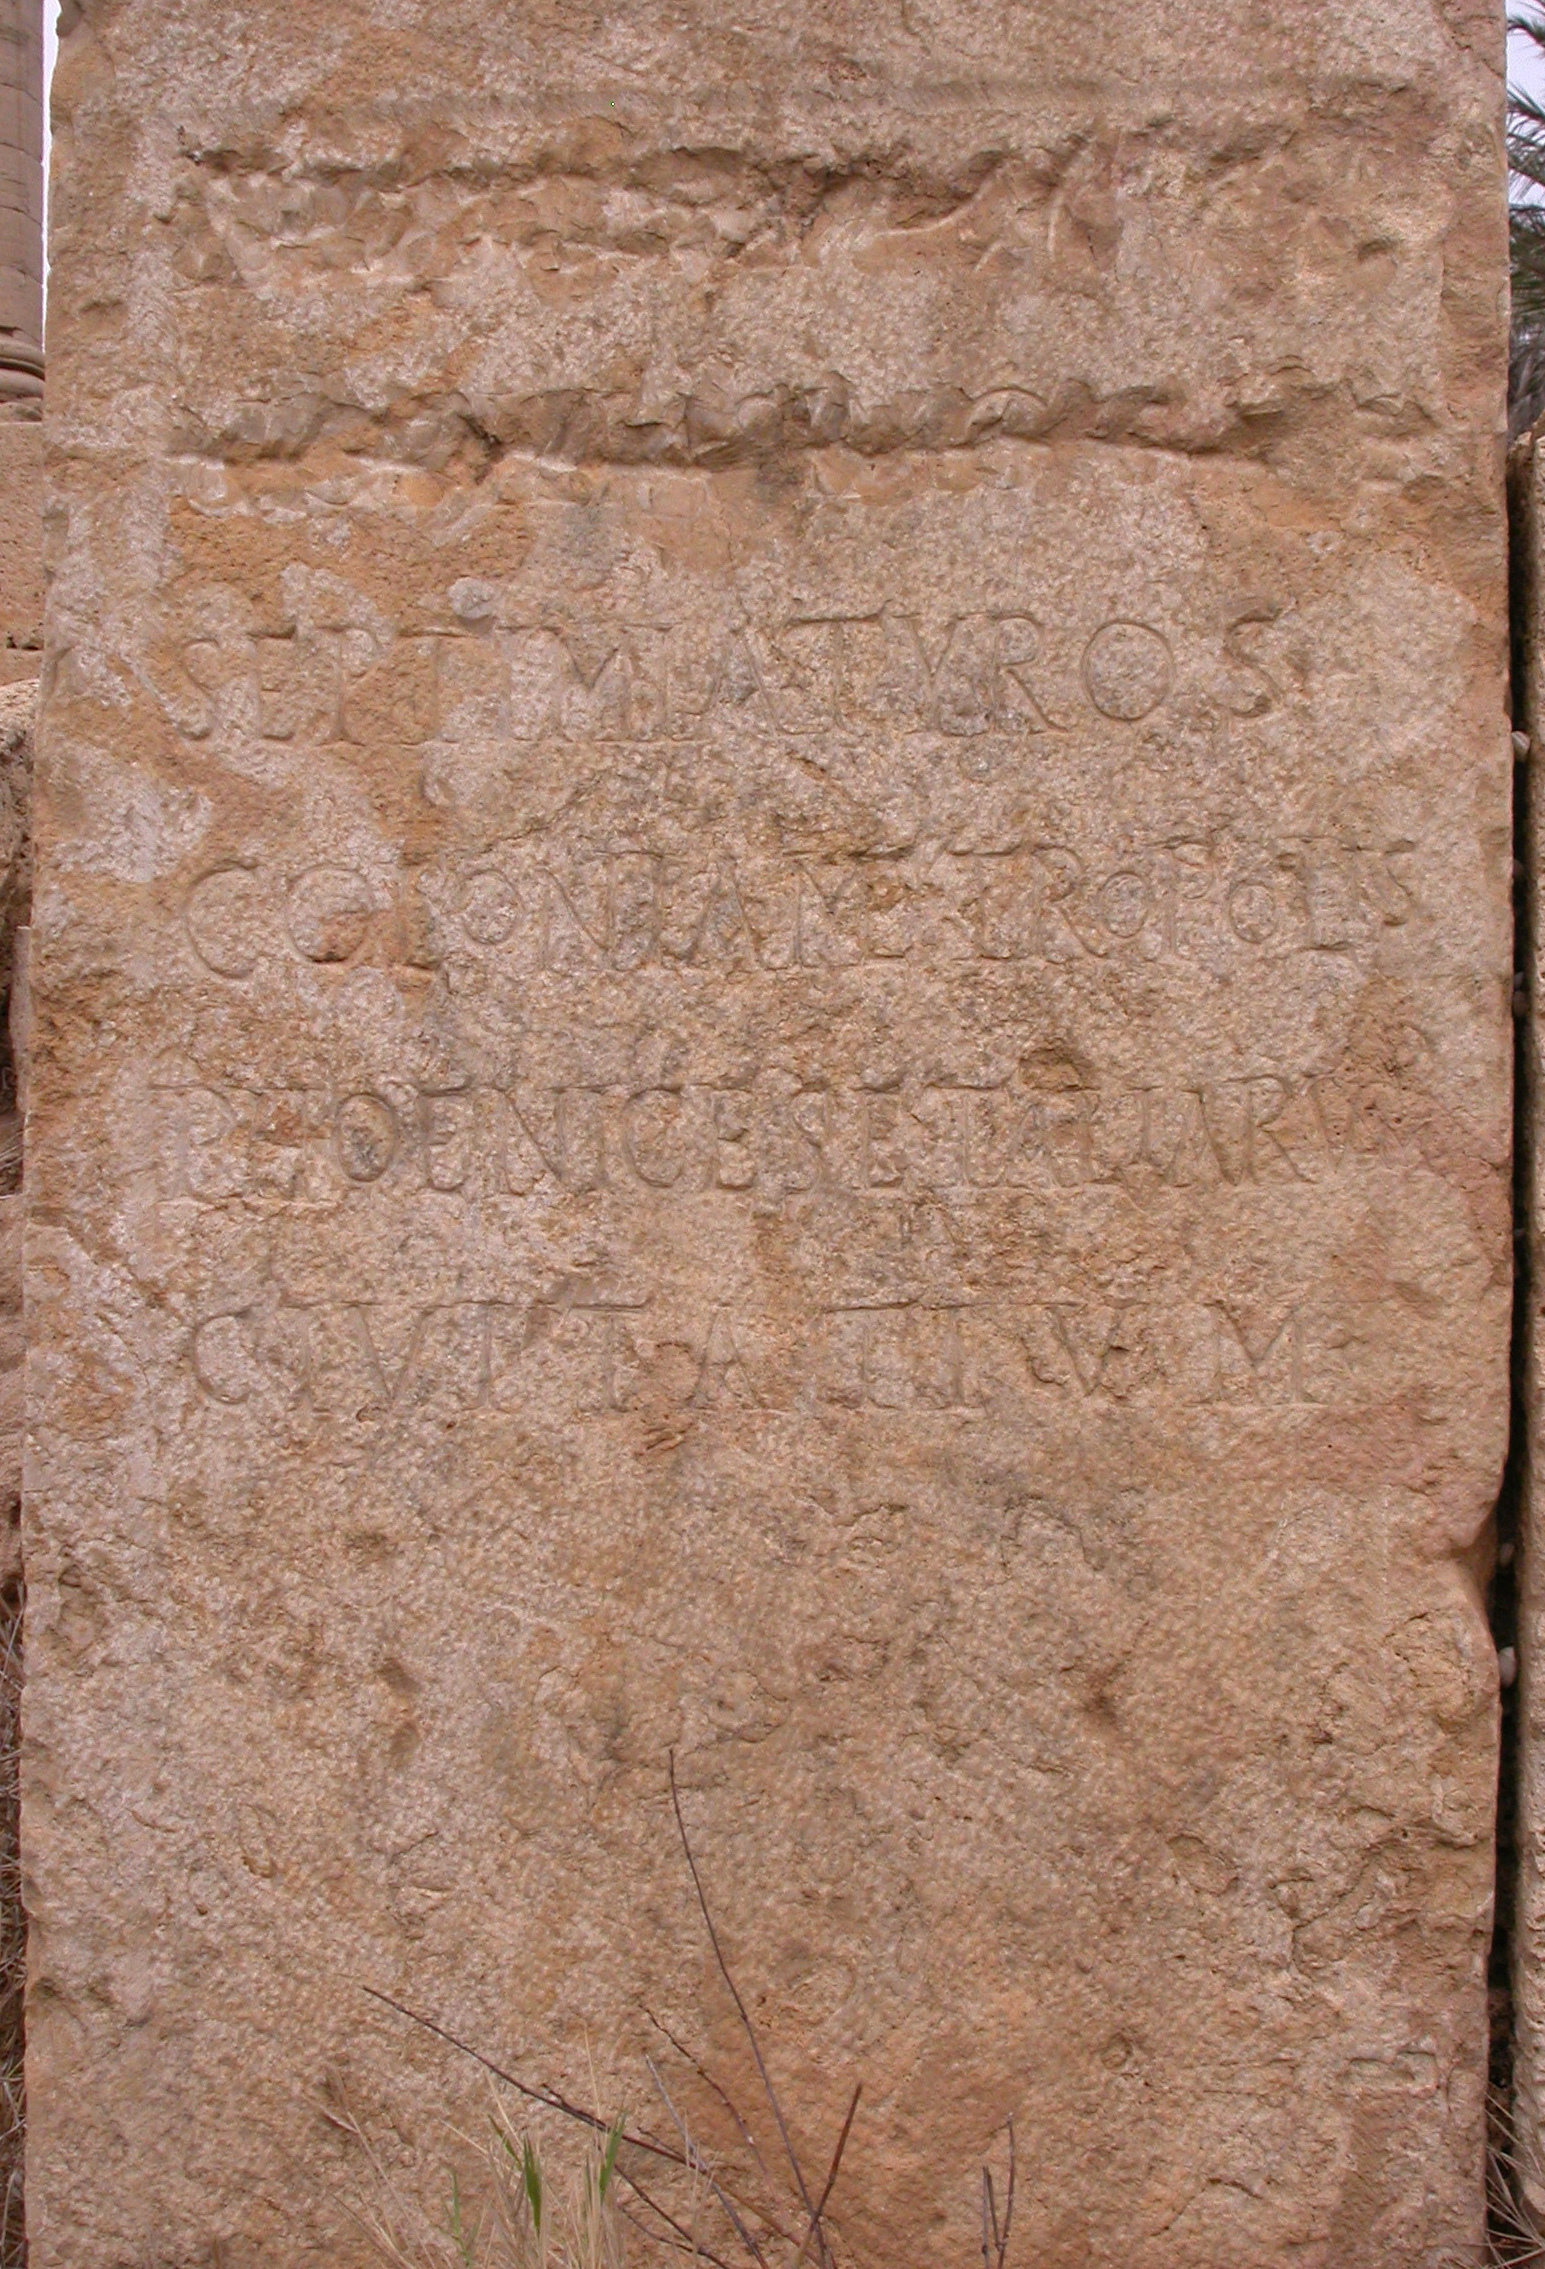 SEPTIMIA TYROS
COLONIA METROPOLIS
PHOENICES ET ALIARVM
CIVITATIVM